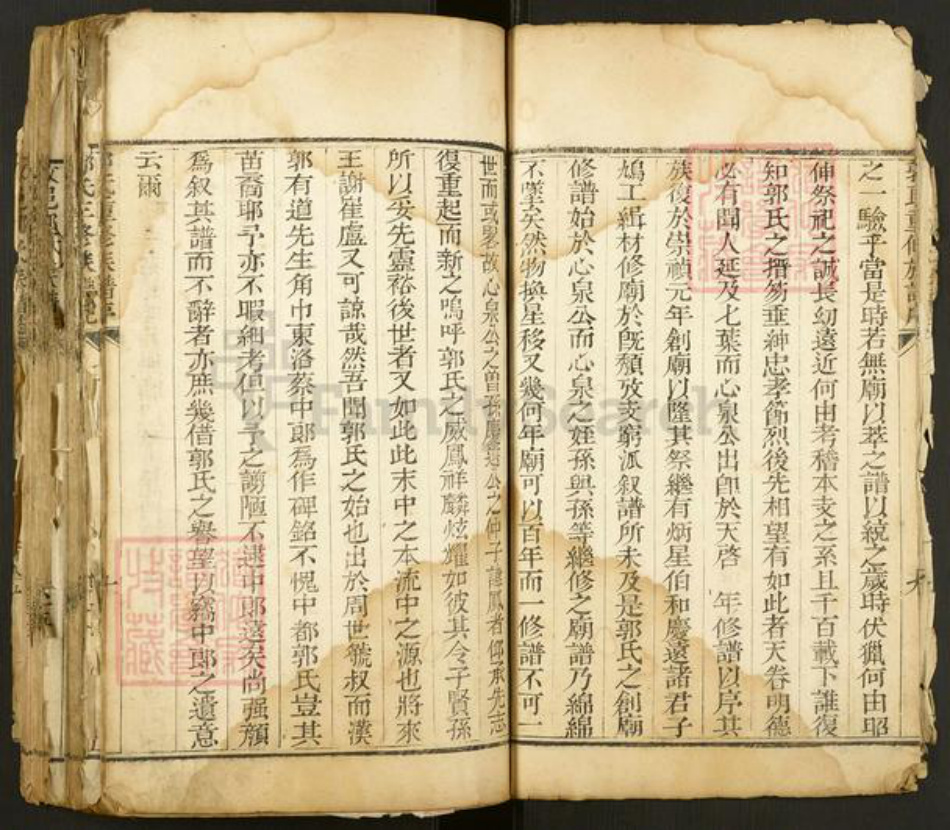 郭氏重修族譜序
之一驗乎當是時若無廟以萃之譜以統之歲時伏獵何由昭
伸祭祀之誠長幼遠近何由考稽本支之系且千百載下誰復
知郭氏之搢笏垂紳忠孝節烈後先相望有如此者天眷明德
必有聞人延及七葉而心泉公出卽於天啓 年修譜以序其
族復於崇禎元年創廟以隆其祭繼有炳星伯和慶遠諸君子
鳩工緝材修廟於旣頹攷支窮派叙譜所未及是郭氏之創廟
修譜始於心泉公而心泉之姪孫興孫等繼修之廟譜乃綿綿
不墜矣然物換星移又幾何年廟可以百年而一修譜不可一
世而或畧故心泉公之曾孫慶遠公之仲子龍鳳者仰承先志
復重起而新之嗚呼郭氏之威鳳祥麟炫燿如彼其今子賢孫
所以妥先靈裕後世者又如此此末中之本流中之源也將來
王謝崔盧又可諒哉然吾聞郭氏之始也出於周世虢叔而漢
郭有道先生角巾東洛蔡中郎爲作碑銘不愧中都郭氏豈其
苗裔耶予亦不暇細考但以予之謭陋不逮中郎遠矣尚强顏
爲叙其譜而不辭者亦庶幾借郭氏之譽望以竊中郎之遺意
云爾
FamilySearch